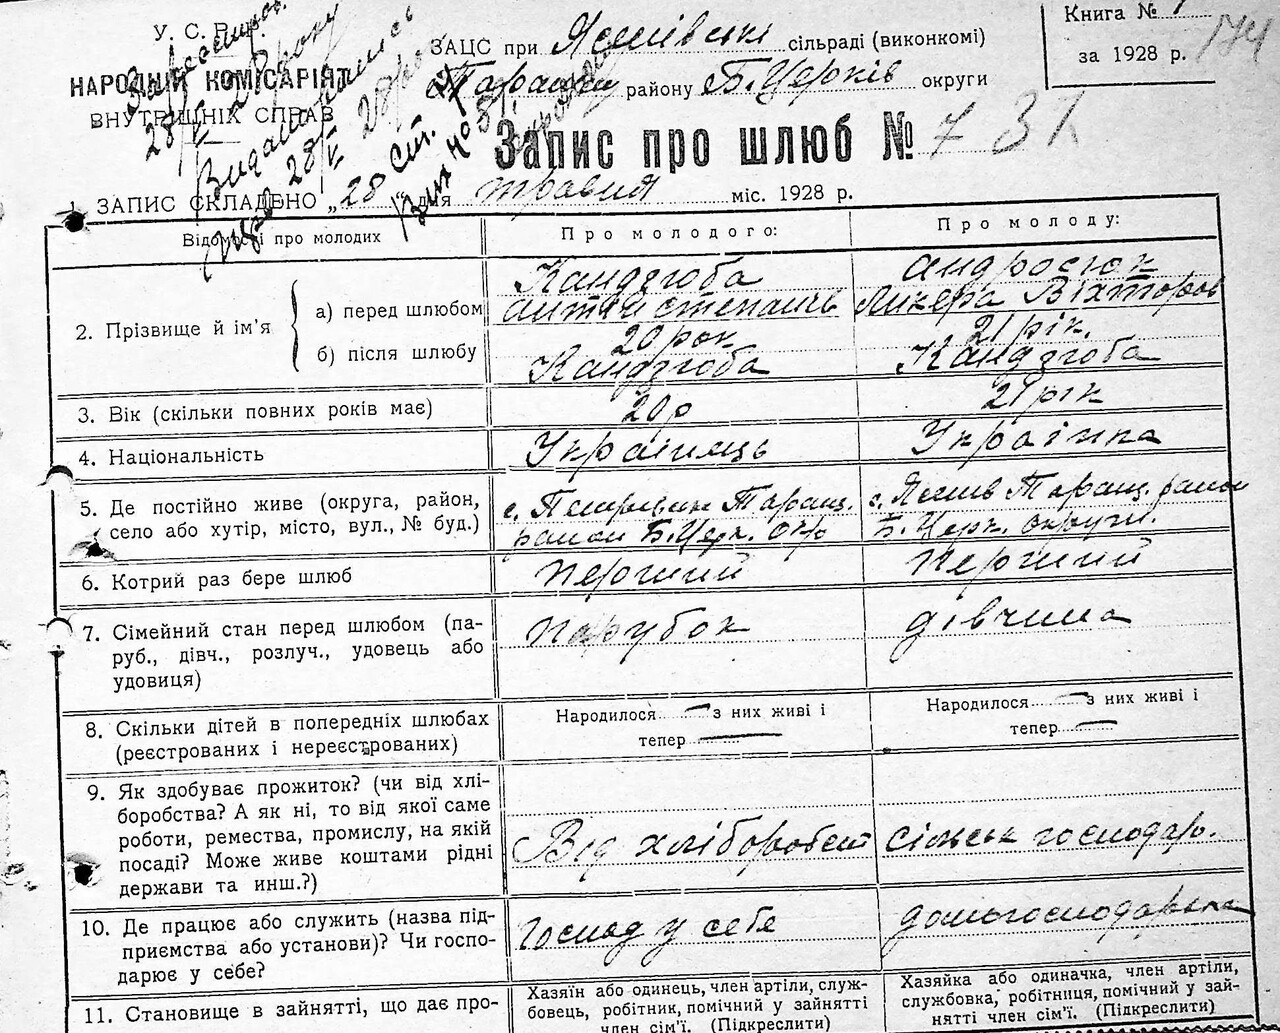 У. С. Р. Р.
НАРОДНІЙ КОМІСАРІЯТ
ВНУТРІШНІХ СПРАВ
ЗАЦС при Яшківські сільраді (виконкомі)
Таращ району Б. Церків округи
Книга №
за 1928 р. 174
Запис про шлюб № 7 37
1. ЗАПИС СКЛАДЕНО „28" дня травня міс. 1928 р.
Відомості про молодих
Про молодого:
Про молоду:
2. Прізвище й ім'я
а) перед шлюбом
б) після шлюбу
Кандзюба
Степань
20 рок
Кандзюба
Андросюк
Ликера Вікторов
21 рік.
Кандзюба
3. Вік (скільки повних років має)
20 р
21 рік
4. Національність
Українець
Українка
5. Де постійно живе (округа, район,
село або хутір, місто, вул., № буд.)
с. Таращ.
район Б. Церк. окр
с. Яшків Таращ. район
Б. Церк. округи.
6. Котрий раз бере шлюб
перший
перший
7. Сімейний стан перед шлюбом (па-
руб., дівч., розлуч., удовець або
удовиця)
парубок
дівчина
8. Скільки дітей в попередніх шлюбах
(реєстрованих і нереєстрованих)
Народилося — з них живі і
тепер —
Народилося — з них живі і
тепер —
9. Як здобуває прожиток? (чи від хлі-
боробства? А як ні, то від якої саме
роботи, ремества, промислу, на якій
посаді? Може живе коштами рідні
держави та инш.?)
Від хліборобст
сільськ господар.
10. Де працює або служить (назва під-
приємства або установи)? Чи госпо-
дарює у себе?
Господ у себе
домогосподарька
11. Становище в зайнятті, що дає про-
Хазяїн або одинець, член артіли, служ-
бовець, робітник, помічний у зайнятті
член сім'ї. (Підкреслити)
Хазяйка або одиначка, член артіли,
службовка, робітниця, помічний у зай-
нятті член сім'ї. (Підкреслити)